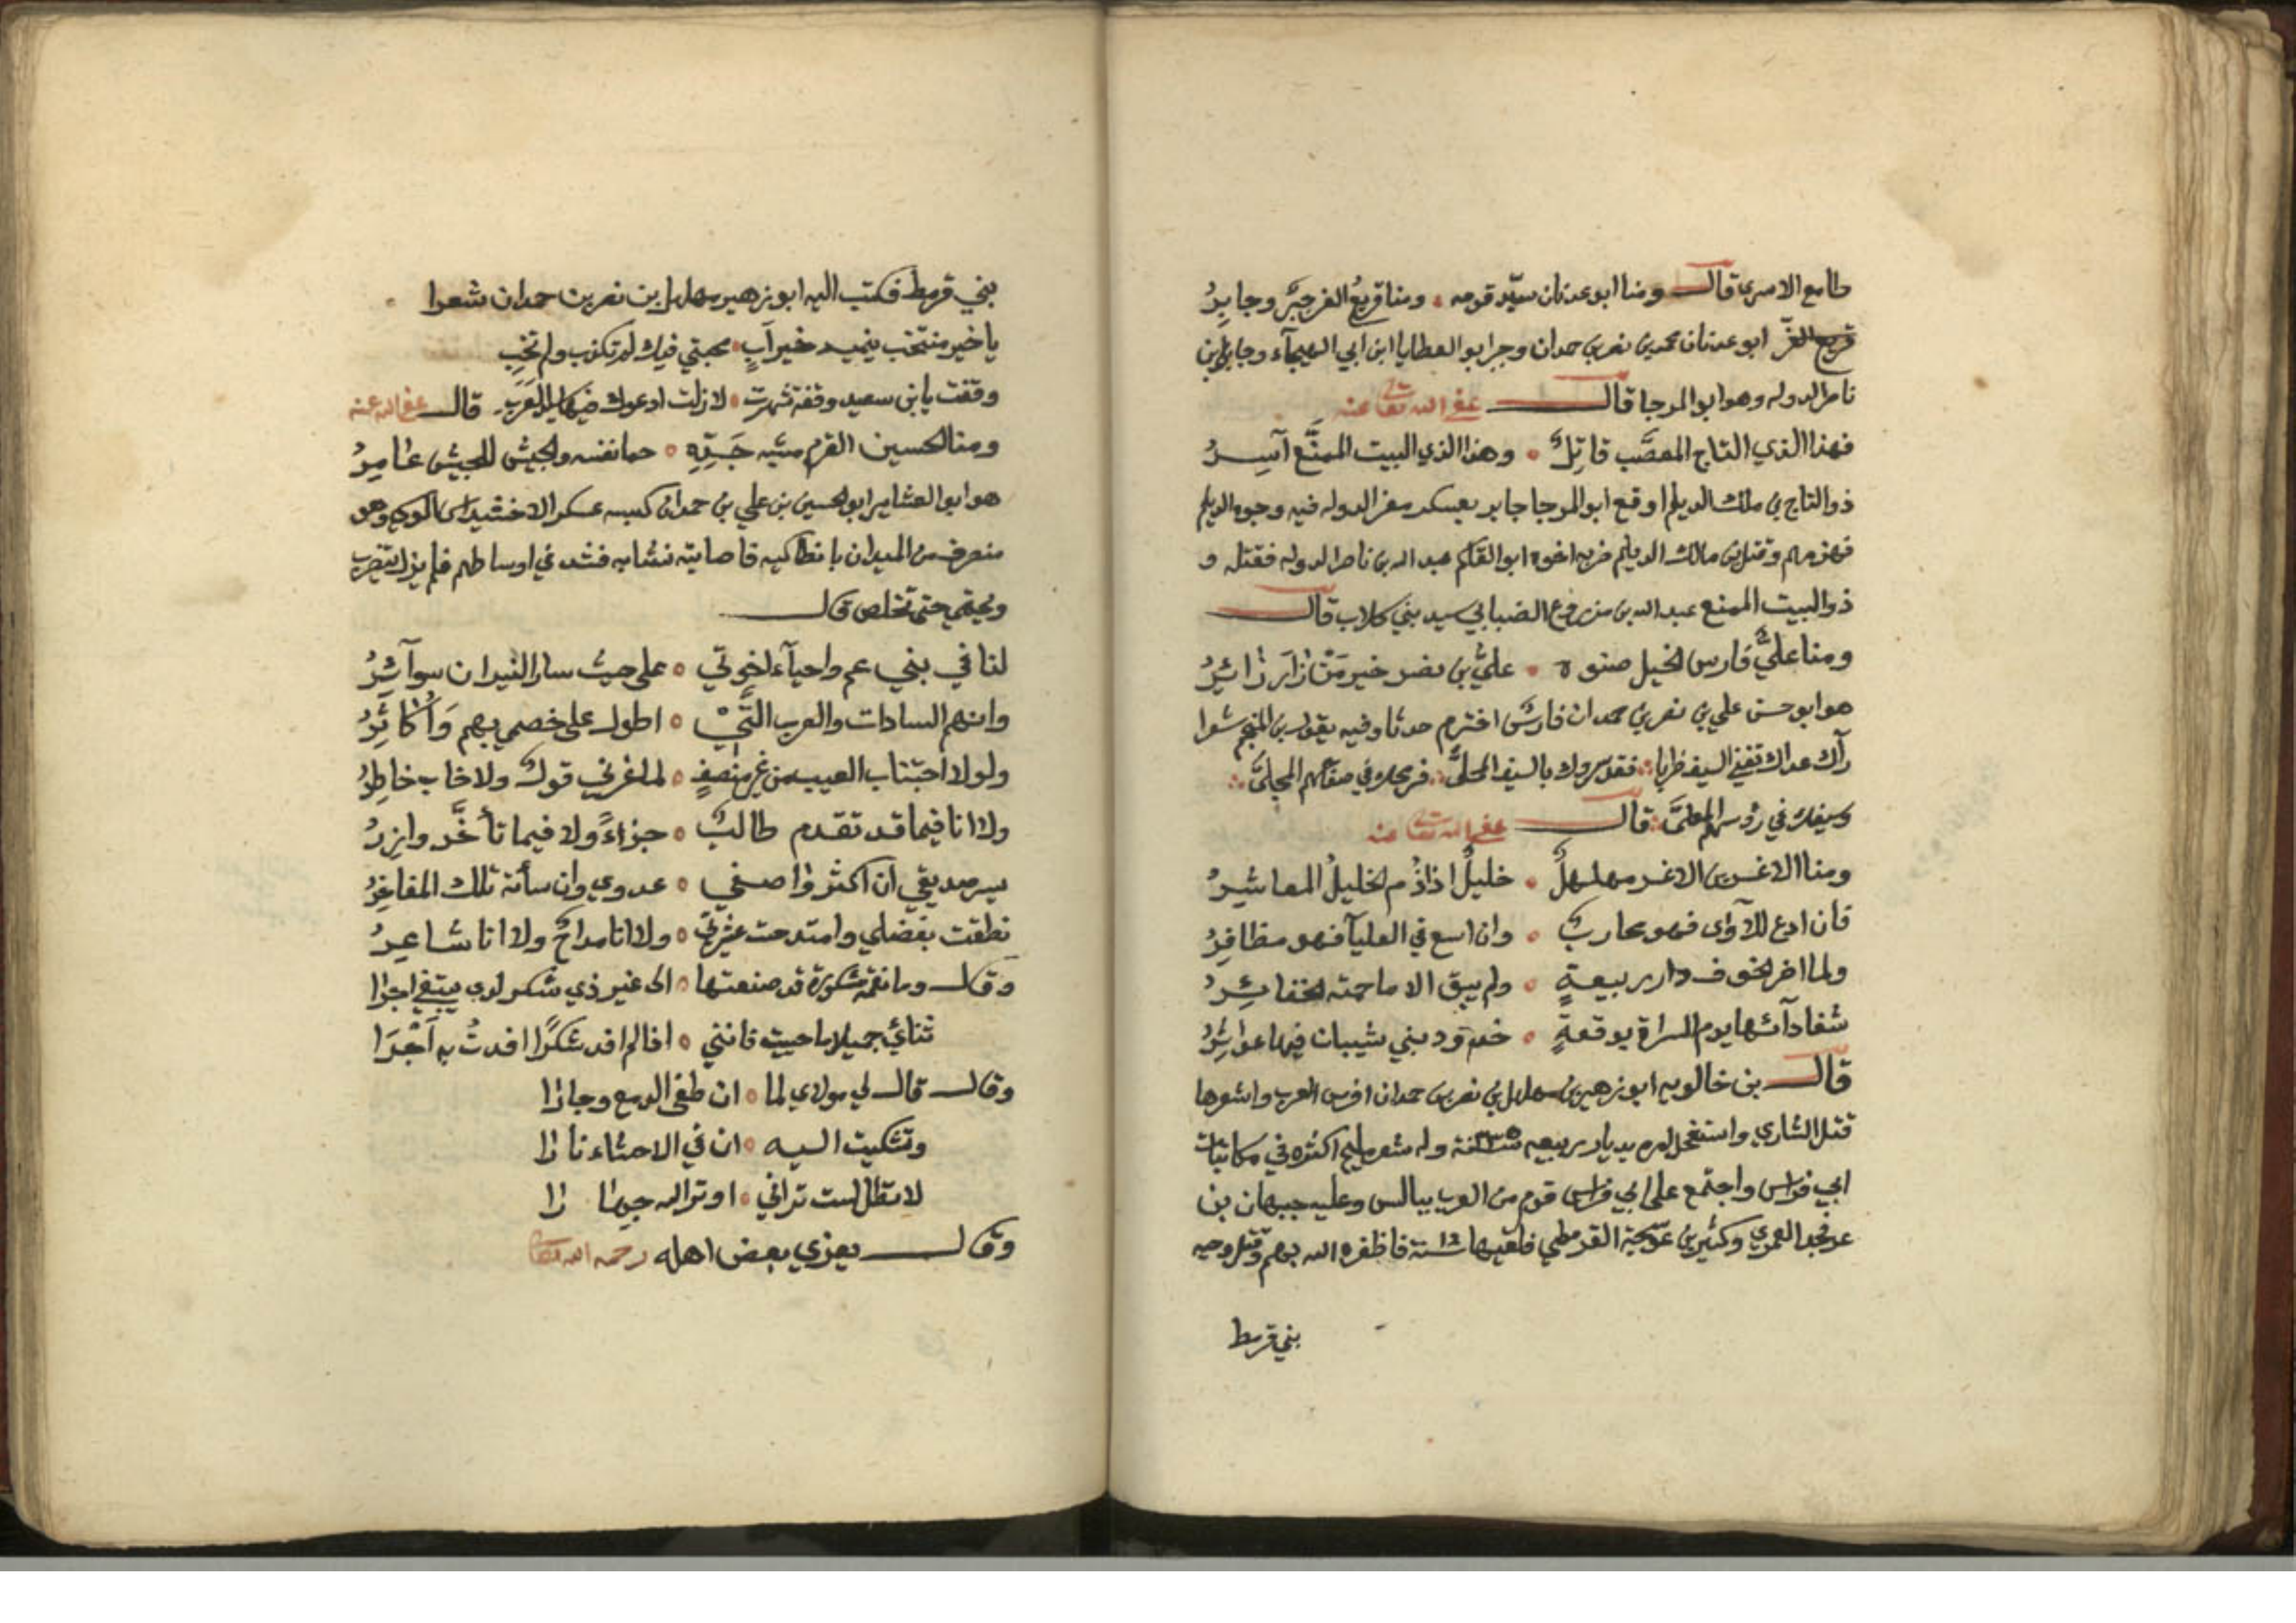 طامع الاسرى قال ومنا ابو عدنان سيّد قومه ومنا قريعُ العز جبرٌ وجابرُ
قريع العزّ ابو عدنان محمد بن نصر بن حمدان وجبر ابو العطايا ابن ابي الهيجآء وجابر بن
ناصر الدوله وهو ابو المرجا قال عفى الله تعا عنه
فهذا الذي التاج المعصَّب قاتِلٌ وهذا الذي البيت الممنَّع آسِرُ
ذو التاج بن ملك الديلم اوقع ابو المرجا جابر بعسكر معز الدوله فيه وجوه الديلم
فهزمهم وقتل بن مالك الديلم ضربه اخوه ابو القاسم عبد الله بن ناصر الدوله فقتله و
ذو البيت الممنع عبد الله بن مزروع الضبابي سيد بني كلاب قال
ومنا عليٌّ فارس الخيل صنوه عليُّ بن نصر خير مَنْ زَارَ زَائِرُ
هو ابو حسن علي بن نصر بن حمدان فارس اخترم حدثا وفيه يقول بن المنجم شعرا
رآك عداك تقفي السيف ظربا فقد سموك بالسيف المحلىَّ فرمحك في صفاهم المجلىَّ
وسيفك في رؤسهم المعلىَّ قال عفى الله تعا عنه
ومنا الاغر بن الاغر مهلهلٌ خليلٌ اذا ذُم الخليلُ المعاشِرُ
فان ادع للآواى فهو محاربٌ وان اسع في العليآ فهو مظافِرُ
ولما اضر الخوف دار ربيعةٍ ولم يبق الا ما حمته الخفائِرُ
شفا دآئها يوم السراة بوقعةٍ خدود بني شيبان فيها عوٰاثِرُ
قال بن خالويه ابو زهير بن مهلهل بن نصر بن حمدان افرس العرب واشعرها
قتل الشاري واستفحل امره بديار ربيعه سنة ٣٣٥ وله شعر مليح اكثره في مكاتبات
ابي فراس واجتمع على ابي فراس قوم من العرب ببالس وعليه جبهان بن
عرفجه العمري وكثير بن عوسجة القرمطي فلقيها سنة فاظفره الله بهم وقتل وجيه
بني قرمط
بني قرمط فكتب اليه ابو زهير مهلهل بن نصر بن حمدان شعرا
يا خير منتخب ينميه خير اَبٍ محبتي فيك لم تكذب ولم تخبِ
وقفت يا بن سعيد وقفة شهرت لا زلت ادعوك فيها العَرَبِ قال عفى الله عنه
ومنا الحسين القرم مشبه جَدِّهِ حما نفسه والجيش للجيش غٰامِرُ
هو ابو العشاير ابو الحسين بن علي بن حمدان كبسه عسكر الاخشيد وهو
منصرف من الميدان بانطاكيه فاصابته نشابه فشد في اوساطهم فلم يزل يضرب
ويحتمي حتى تخلص قال
لنا في بني عم واحيآء اخوتي على حيث سار النيران سوآئرُ
وانهم السادات والعرب التَّي اطول على خصمي بهم وَأُكاثِرُ
ولولا اجتناب العيب من غير منصفٍ لما غرني قولٌ ولا خاب خاطِرُ
ولا انا فيما قد تقدم طالبٌ جزاءً ولا فيما تأخَّر وازِرُ
يسر صديقي ان اكثر وٰاصفي عدوي وان سأته تلك المفاخِرُ
نطقت بفضلي وامتدحت عشيرتي ولا انا مداحٌ ولا انا شاعِرُ
وقال وما نعمة مشكورة قد صنعتها الى غير ذي شكر لدي يبتغي اجرا
ثنائي جميلا ما حييت فانني اذا لم افد شكرًا افدتُ به اَجْرَا
وقال قال لي مولاي لما ان طغى الدمع وجارٰا
وتشكيت اليه ان في الاحشاء نارٰا
لا تطل لست تراني او ترا الله جهٰا رٰا
وقال يعزي بعض اهله رحمه الله تعا